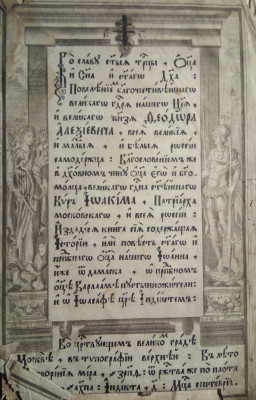 Во славу ст҃ыѧ трⷪ҇цы, Ѻц҃а
и Сн҃а и ст҃агѡ Дх҃а:
Повелѣнїемъ бл҃гочестивѣйшагѡ
великагѡ гдⷭ҇рѧ нашегѡ Цр҃ѧ,
и великагѡ кн҃зѧ Ѳеодѡра
Алеѯїевича, всеѧ великїѧ,
и малыѧ, и бѣлыѧ рѡссїи
самодержца: Бл҃гословенїемъ же
в дх҃овномъ чинꙋ ѻц҃а егѡ и бг҃о-
молца, великагѡ гдⷭ҇на ст҃ѣйшагѡ
Кѷръ Іѡакіма, Патрїарха
московскагѡ, и всеѧ рѡссїи:
Издадесѧ книга сїѧ содержащаѧ
Їсторїю, или повѣсть ст҃агѡ и
прпⷣбнагѡ ѻц҃а нашегѡ Іѡанна,
иже ѿ дамаска, ѡ прпⷣбномъ
ѻц҃ѣ Варлаамѣ пꙋстынножителѣ:
и ѡ Іѡасафѣ цр҃ѣ Їндїйстемъ:
Во цр҃твꙋющемъ великомъ градѣ
Москвѣ, въ тѷпографїи верхней: Въ лѣто
ѿ сотворенїѧ мїра, ҂зр҃п҃ѳ: ѿ рж҃тва же по плоти
҂ах҃п҃а: Їндїкта, д҃: Мцⷭ҇а септеврїа: